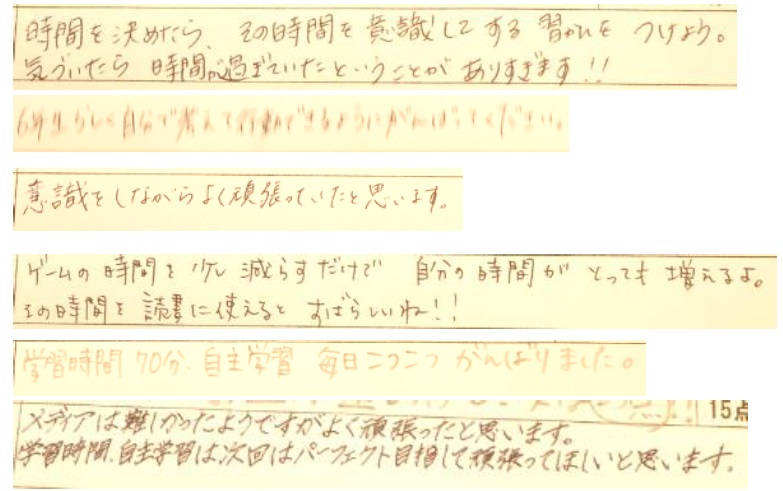 時間を決めたら、その時間を意識してする習かんをつけよう。
気づいたら時間が過ぎていたということがありすぎます!!
6年生らしく自分で考えて行動できるようにがんばってください。
意識をしながらよく頑張っていたと思います。
ゲームの時間を少し減らすだけで 自分の時間が とっても 増えるよ。
その時間を読書に使えると すばらしいね!!
学習時間 70分、自主学習 毎日こつこつ がんばりました。
15点
メディアは難しかったようですがよく頑張ったと思います。
学習時間、自主学習は次回はパーフェクト目指して頑張ってほしいと思います。